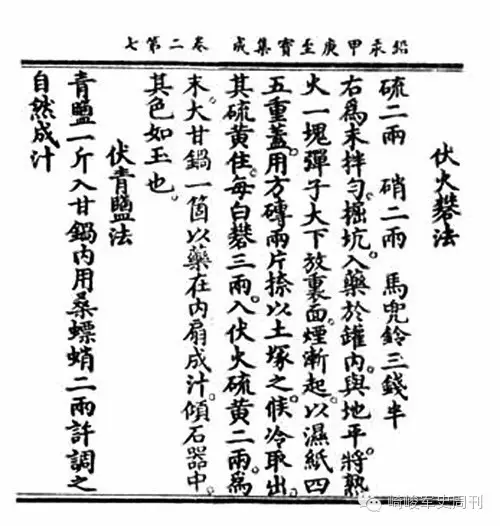 鉛汞甲庚至寶集成 卷二第七
伏火礬法
硫二兩 硝二兩 馬兜鈴三錢半
右爲末拌勻。掘坑。入藥於罐內。與地平。將熟
火一塊彈子大下放裏面。煙漸起。以濕紙四
五重蓋。用方磚兩片捺以土塚之。候冷取出。
其硫黃住。每白礬三兩。入伏火硫黃二兩。爲
末。大甘鍋一箇以藥在內扇成汁。傾石器中。
其色如玉也。
伏青鹽法
青鹽一斤入甘鍋內用桑螵蛸二兩許調之
自然成汁
崎峻军史周刊